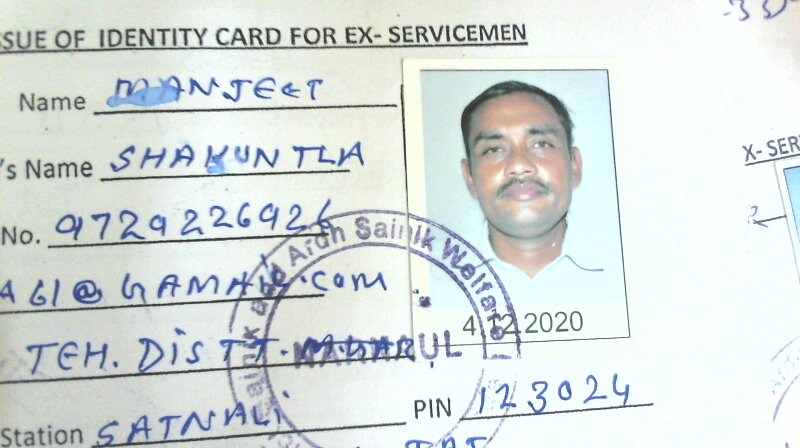 SSUE OF IDENTITY CARD FOR EX- SERVICEMEN
Name MANJEET
's Name SHAKUNTLA
No. 9729226926
AG1@GAMAIL.COM
TEH. DISTT.
Station SATNALI
PIN 123024
4.12.2020
Sainik and Ardh Sainik Welfare
X- SER